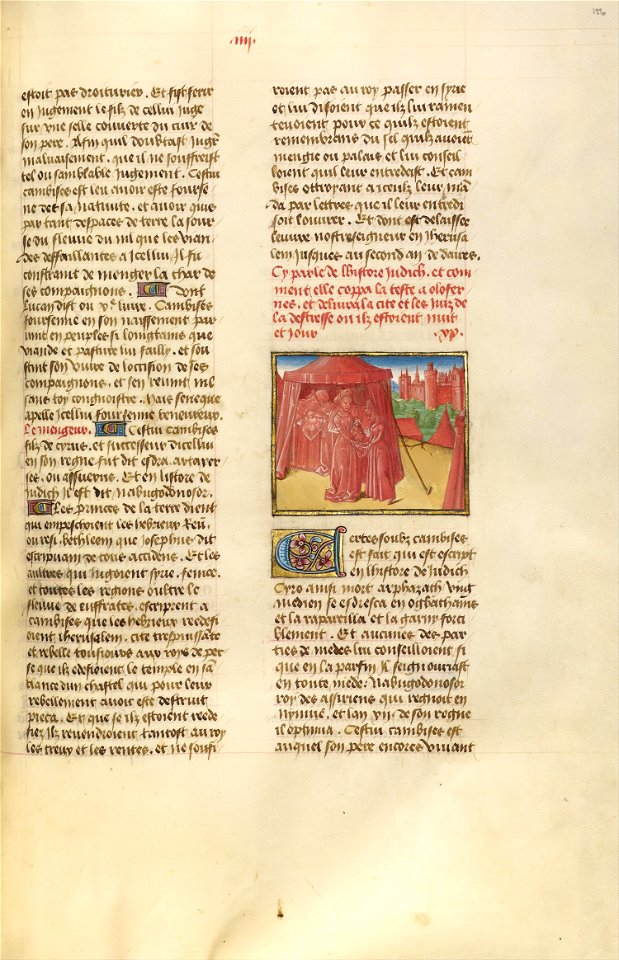 .iiij.
estoit pas droiturier. Et fist serir
en jugement le filz de cellui juge
sur vne selle couuerte du cuir de
son pere. Afin quil doubtast jugr
malvaisement, que il ne souffreist
tel ou samblable jugement. Cestui
cambises est leu auoir este fourse
ne des sa natiuite, et auoir quis
par tant despaces de terre la sour
se du fleuue du nil que les vian
des deffaillantes a icellui, Il fu
constraint de menger la char de
ses compaignons. Dont
lucan dist ou .x. liure. Cambises
foursenne en son naissement par
uint en peuples si longtains que
viande et pasture lui failly. et sou
stint son viure de loccision de ses
compaignons, et sen reuint nil
sans toy congnoistre. Mais seneque
apelle icellui foursenne teneureux.
Le mengeur. Cestui cambises
filz de cyrus. et successeur dicellui
en son regne fut dit esdra. artaxer
ses. ou assuerus. Et en listore de
judich il est dit nabugodonosor.
Les princes de la terre dient
qui empeschoient les hebrieux
ou resi. bethleem que Josephus dit
escripuain de tous accidens. Et les
aultres qui jugoient syrie, fenice,
et toutes les regions oultre le
fleuue de euffrates, escriprent a
cambises que les hebrieux reedefi
oient iherusalem, cite trespuissante
et rebelle tousiours aux roys de per
se que ilz edefioient le temple en sam
blance dun chastel qui pour leur
rebellement auoit este destruit
pieca. Et que se ilz estoient reede
fiez ilz reuendroient tantost au roy
les treux et les rentes, et ne soufi
roient pas au roy passer en syrie
et lui disoient que ilz lui ramen
teuoient pour ce quilz estoient
remembrans du sel quilz auoient
mengie ou palais et lui conseil
loient quil leur entredeist. Et cam
bises ottroyant a iceulx leur man
da par lettres que il leur entredi
soit louurer. Et dont est delaissee
leuure nostreseigneur en iherusa
lem jusques au second an de daires.
Cy parle de lhistore judich. et com
ment elle coppa la teste a olofer
nes. et deliura la cite et les juifz de
la destresse ou ilz estoient nuit
et jour .xv.
Certes soubz cambises
est fait qui est escript
en lhistore de Judich
Cyro ainsi mort arpharath vng
medien se esdresca en egbathains
et la rapareilla et la garny forci
blement. Et aucunes des par
ties de medes lui conseilloient si
que en la parfin il seignourist
en toute mede. Nabugodonosor
roy des assiriens qui regnoit en
nyniue, et lan .xii. de son regne
il optinua. Cestui cambises est
auquel son pere encores viuant